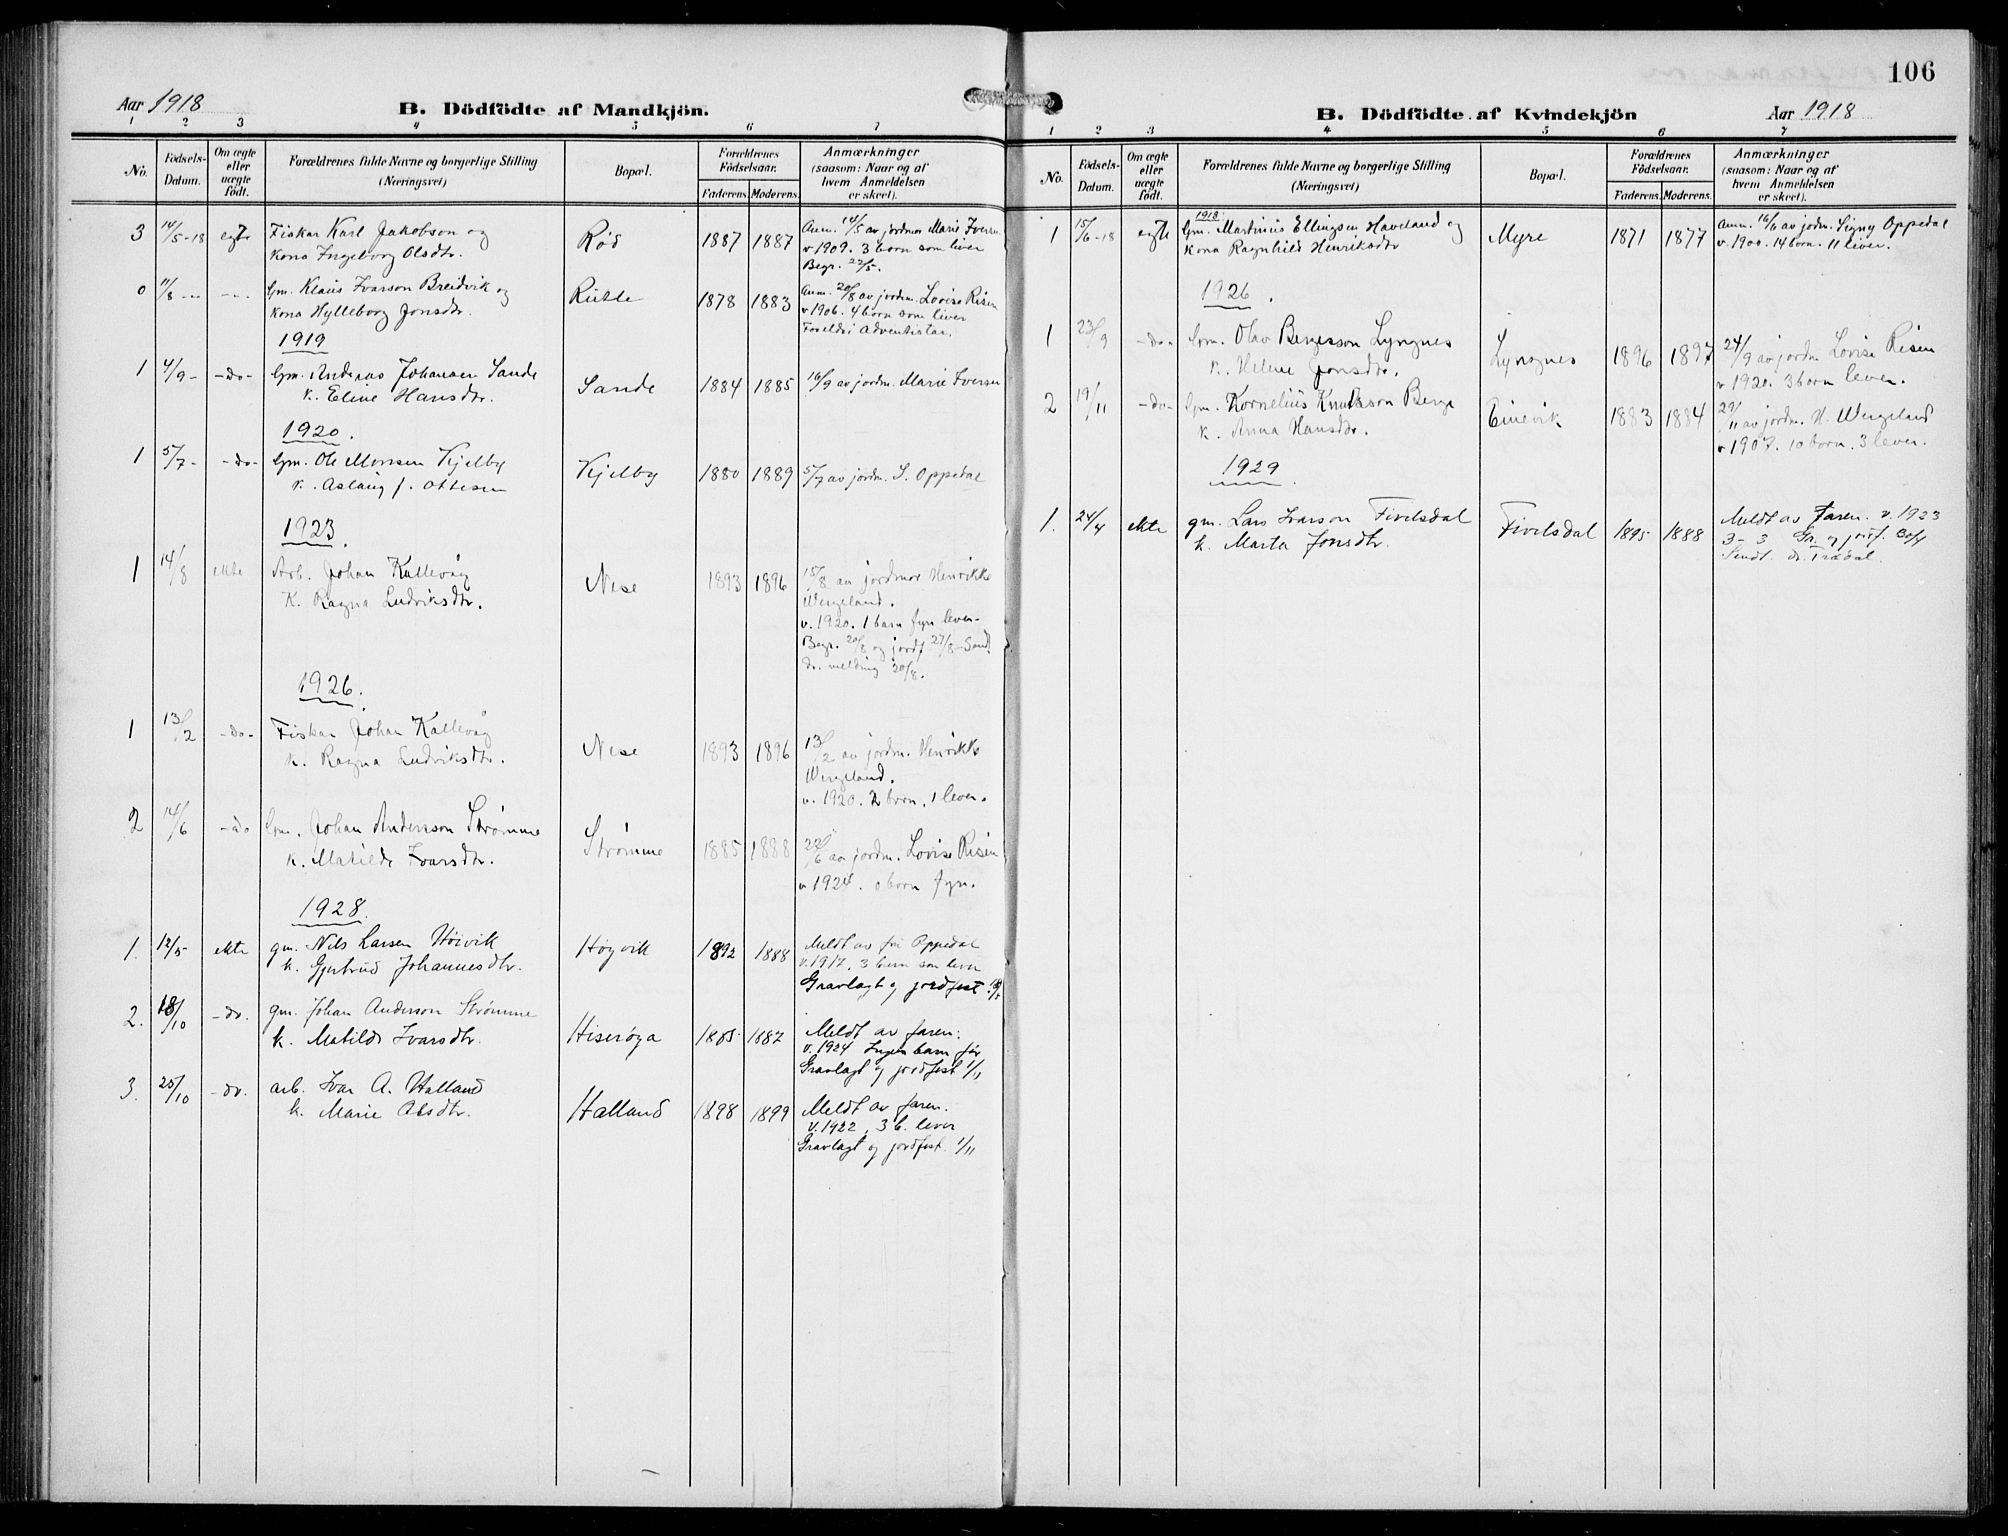 106
Aar 1918
B. Dödfödte af Mandkjön.
1 2 3 4 5 6 7
No.
Födsels-Datum.
Om ægte eller uægte födt.
Forældrenes fulde Navne og borgerlige Stilling (Næringsvei)
Bopæl.
Forældrenes Födselsaar.
Faderens. Moderens.
Anmærkninger (saasom: Naar og af hvem Anmeldelsen er skeet).
3 14/5-18 egte Fiskar Karl Jakobson og Rød 1887 1887 Anm. 14/5 av jordmor Marie Iversen
kona Ingeborg Olsdtr. v 1909. 3 born som liver
Begr. 22/5.
0 11/8 -- --- Gm. Klaus Ivarson Breidvik og 1878 1883 Anm. 20/8 av jordm. Lovise Risen
kona Hylleborg Jonsdtr. v 1906. 4 born som liver
Foreldri Adventistar.
1919
1 4/9- -do- Gm. Andreas Johansen Sande Sande 1884 1885 16/9 av jordm. Marie Iversen
k. Eline Hansdtr.
1920.
1 5/7- -do- Gm. Ole Monsen Kjelby Kjelby 1880 1889 5/7 av jordm. S. Oppedal
k. Aslaug f. Ottesen
1923.
1 14/8 ekte Arb. Johan Kallevåg Nese 1893 1896 15/8 av jordmor Henrikke
K. Ragna Ludviksdtr. Wergeland.
v. 1920. 1 barn fyrr lever.
Begr. 20/8 og jordf 27/8 - Sendt
dr. melding 20/8.
1926.
1 13/2 -do- Fiskar Johan Kallevåg Nese 1893 1896 13/2 av jordm. Henrikke
k. Ragna Ludviksdtr. Wergeland.
v. 1920. 2 born, 1 lever.
2 14/6 -do Gm. Johan Andersson Strømme Strømme 1885 1888 22/6 av jordm. Lovise Risen
k. Matilde Ivarsdtr. v 1924. 0 born fyrr.
1928.
1. 12/5 ekte gm. Nils Larsen Høivik Høgvik 1892 1888 Meldt av frk Oppedal
k. Gjertrud Johannesdtr. v. 1917. 3 born som lever
Gravlagt og jordfest
2. 18/10 -do. gm. Johan Anderson Strømme Hiserøya 1885 1887 Meldt av faren.
k. Matilde Ivarsdtr. v. 1924 Ingen barn før
Gravlagt og jordfest 1/11
3. 25/10 -do. arb. Ivar A. Halland Halland 1898 1899 Meldt av faren.
k. Marie Olsdtr. v. 1922. 3 b. lever
Gravlagt og jordfest. 1/11
B. Dödfödte af Kvindekjön
Aar 1918
1 2 3 4 5 6 7
No.
Födsels-Datum.
Om ægte eller uægte födt.
Forældrenes fulde Navne og borgerlige Stilling (Næringsvei)
Bopæl.
Forældrenes Födselsaar.
Faderens. Moderens.
Anmærkninger (saasom: Naar og af hvem Anmeldelsen er skeet).
1918
1 15/6-18 egte Gm. Martinius Ellingsen Haveland og Myre 1871 1877 Anm. 16/6 av jordm. Signy Oppedal
kona Ragnhild Henriksdtr v. 1900. 14 born. 11 liver.
1926.
1 23/9 -do- Gm. Olav Bergesson Lyngnes Lyngnes 1896 1897 24/9 av jordm Lovise Risen
k. Helene Jonsdtr. v 1920. 3 born lever.
2 19/11 -do- Gm. Kornelius Knutsson Berge Einevik 1883 1884 29/11 av jordm. H. Wergeland
k. Anna Hansdtr. v 1907. 10 born. 3 lever.
1929.
1. 24/4 ekte gm. Lars Ivarson Fivelsdal Fivelsdal 1895 1888 Meldt av faren. v. 1923
k. Marta Jonsdtr. 3-3 Gr. og jordf. 30/4
Sendt dr. Trædal.